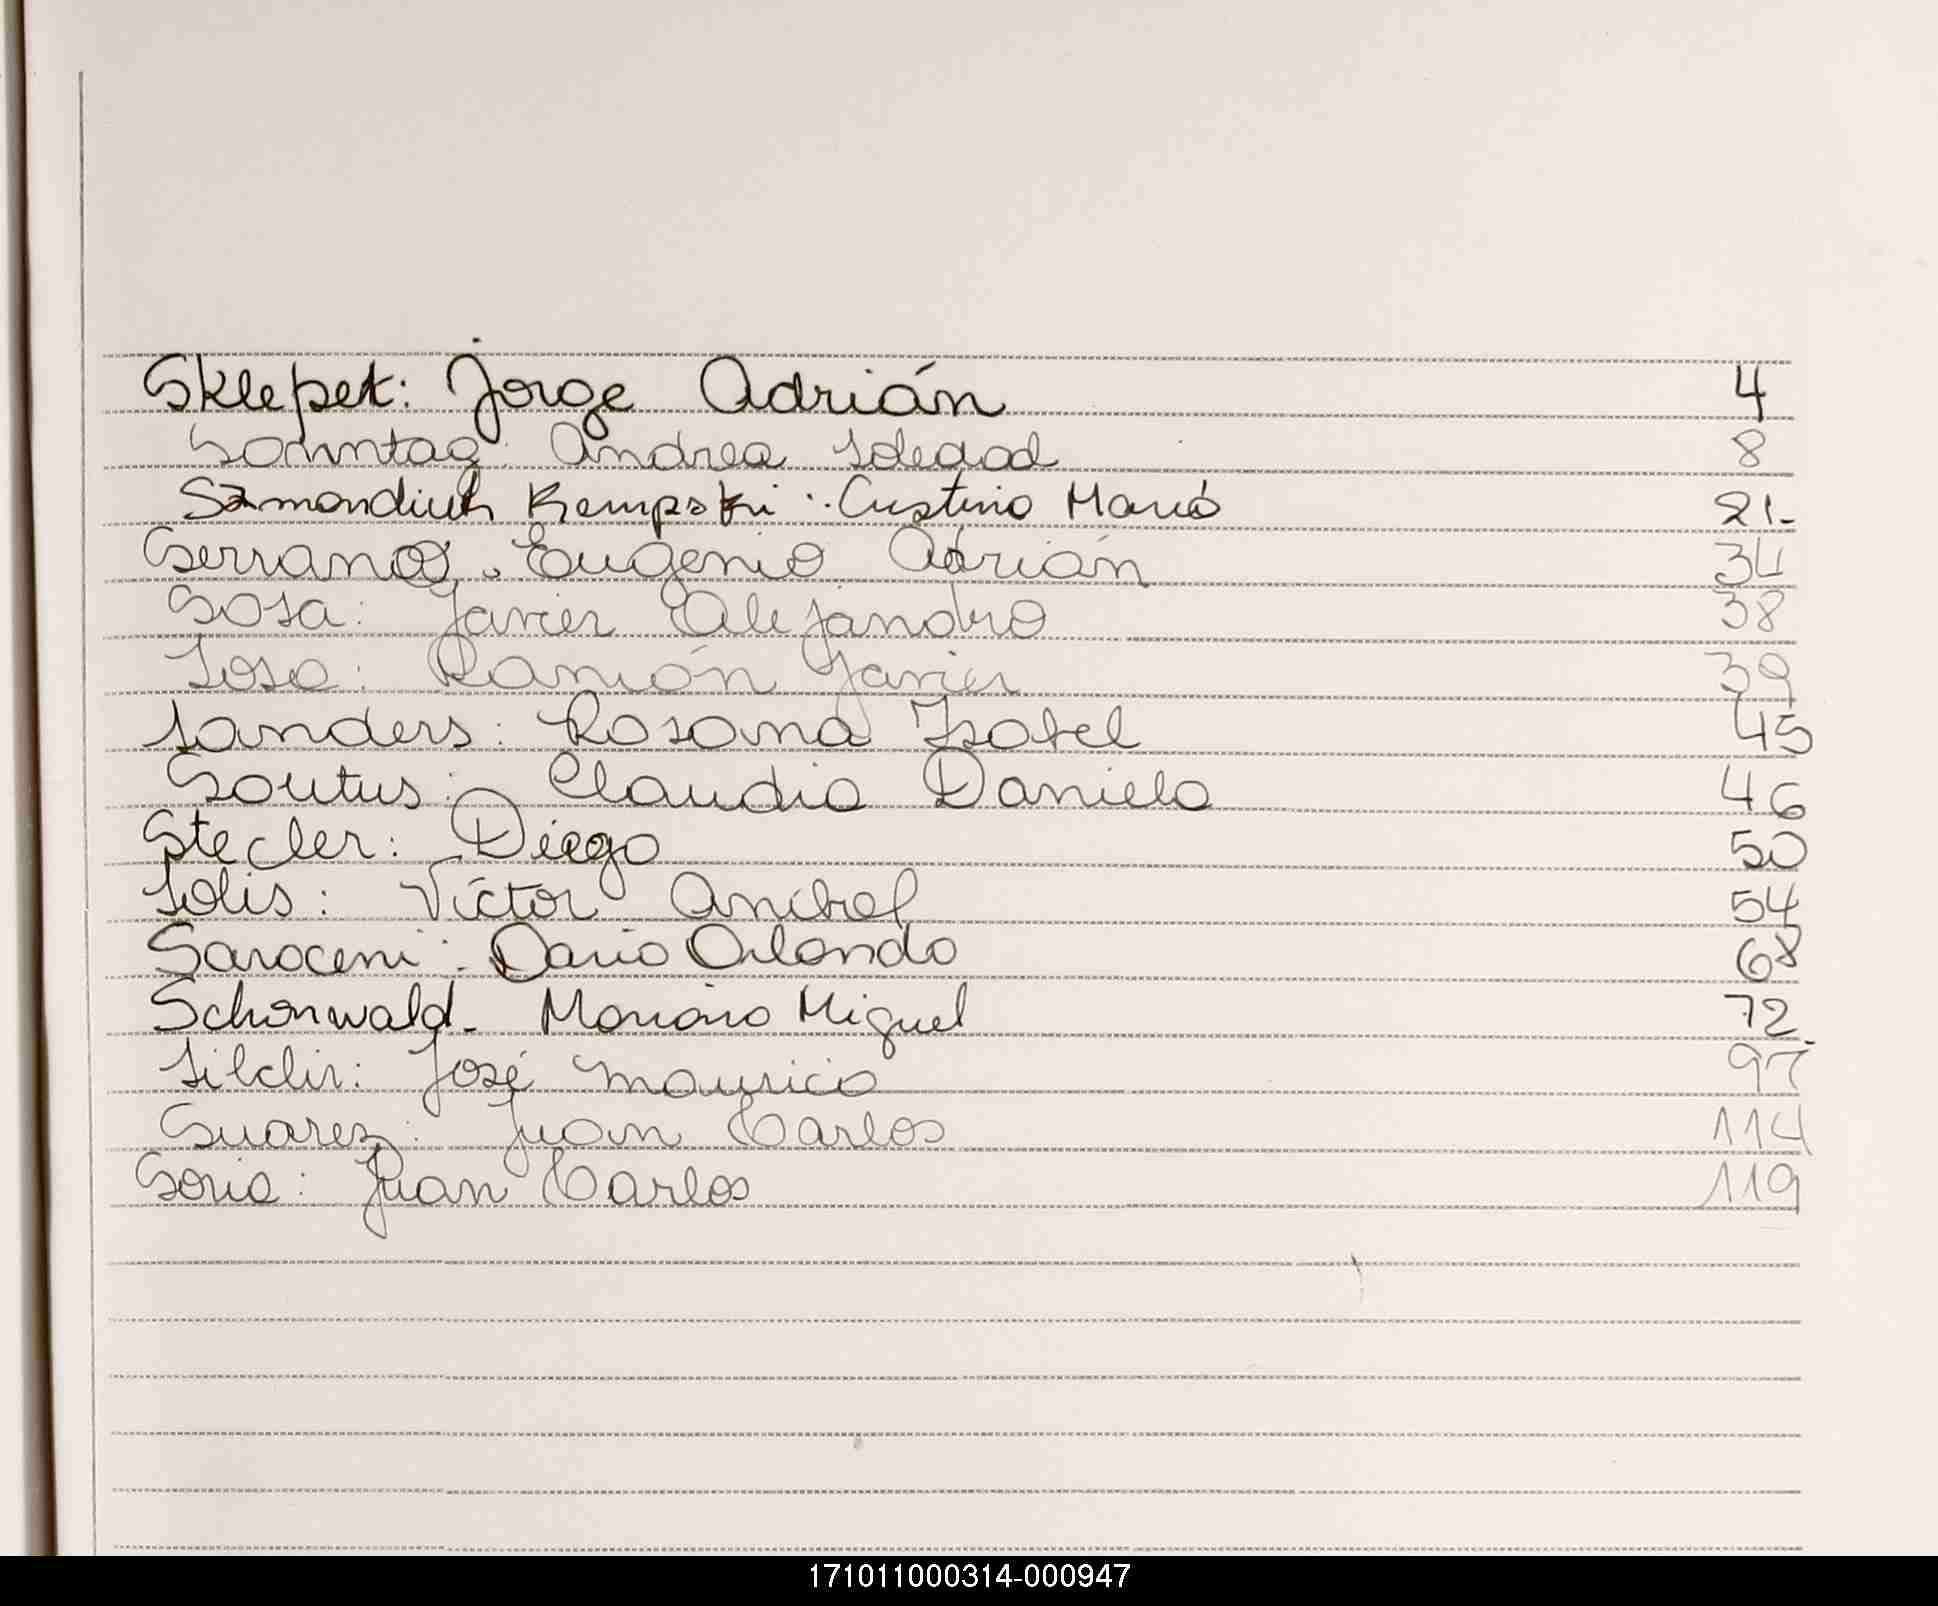 Sklepek: Jorge Adrián 4
Sonntag: Andrea Soledad 8
Kempski: Cristina María 21-
Serrano. Eugenio Adrián 34
Sosa: Javier Alejandro 38
Sosa: Ramón Javier 39
Sanders: Rosana Isabel 45
Soutus: Claudia Daniela 46
Stecler: Diego 50
Solis: Víctor Aníbal 54
Saroceni: Dario Orlando 68
Schonwald- Mariano Miguel 72-
José Mauricio 97
Suarez: Juan Carlos 114
Soria: Juan Carlos 119
171011000314-000947